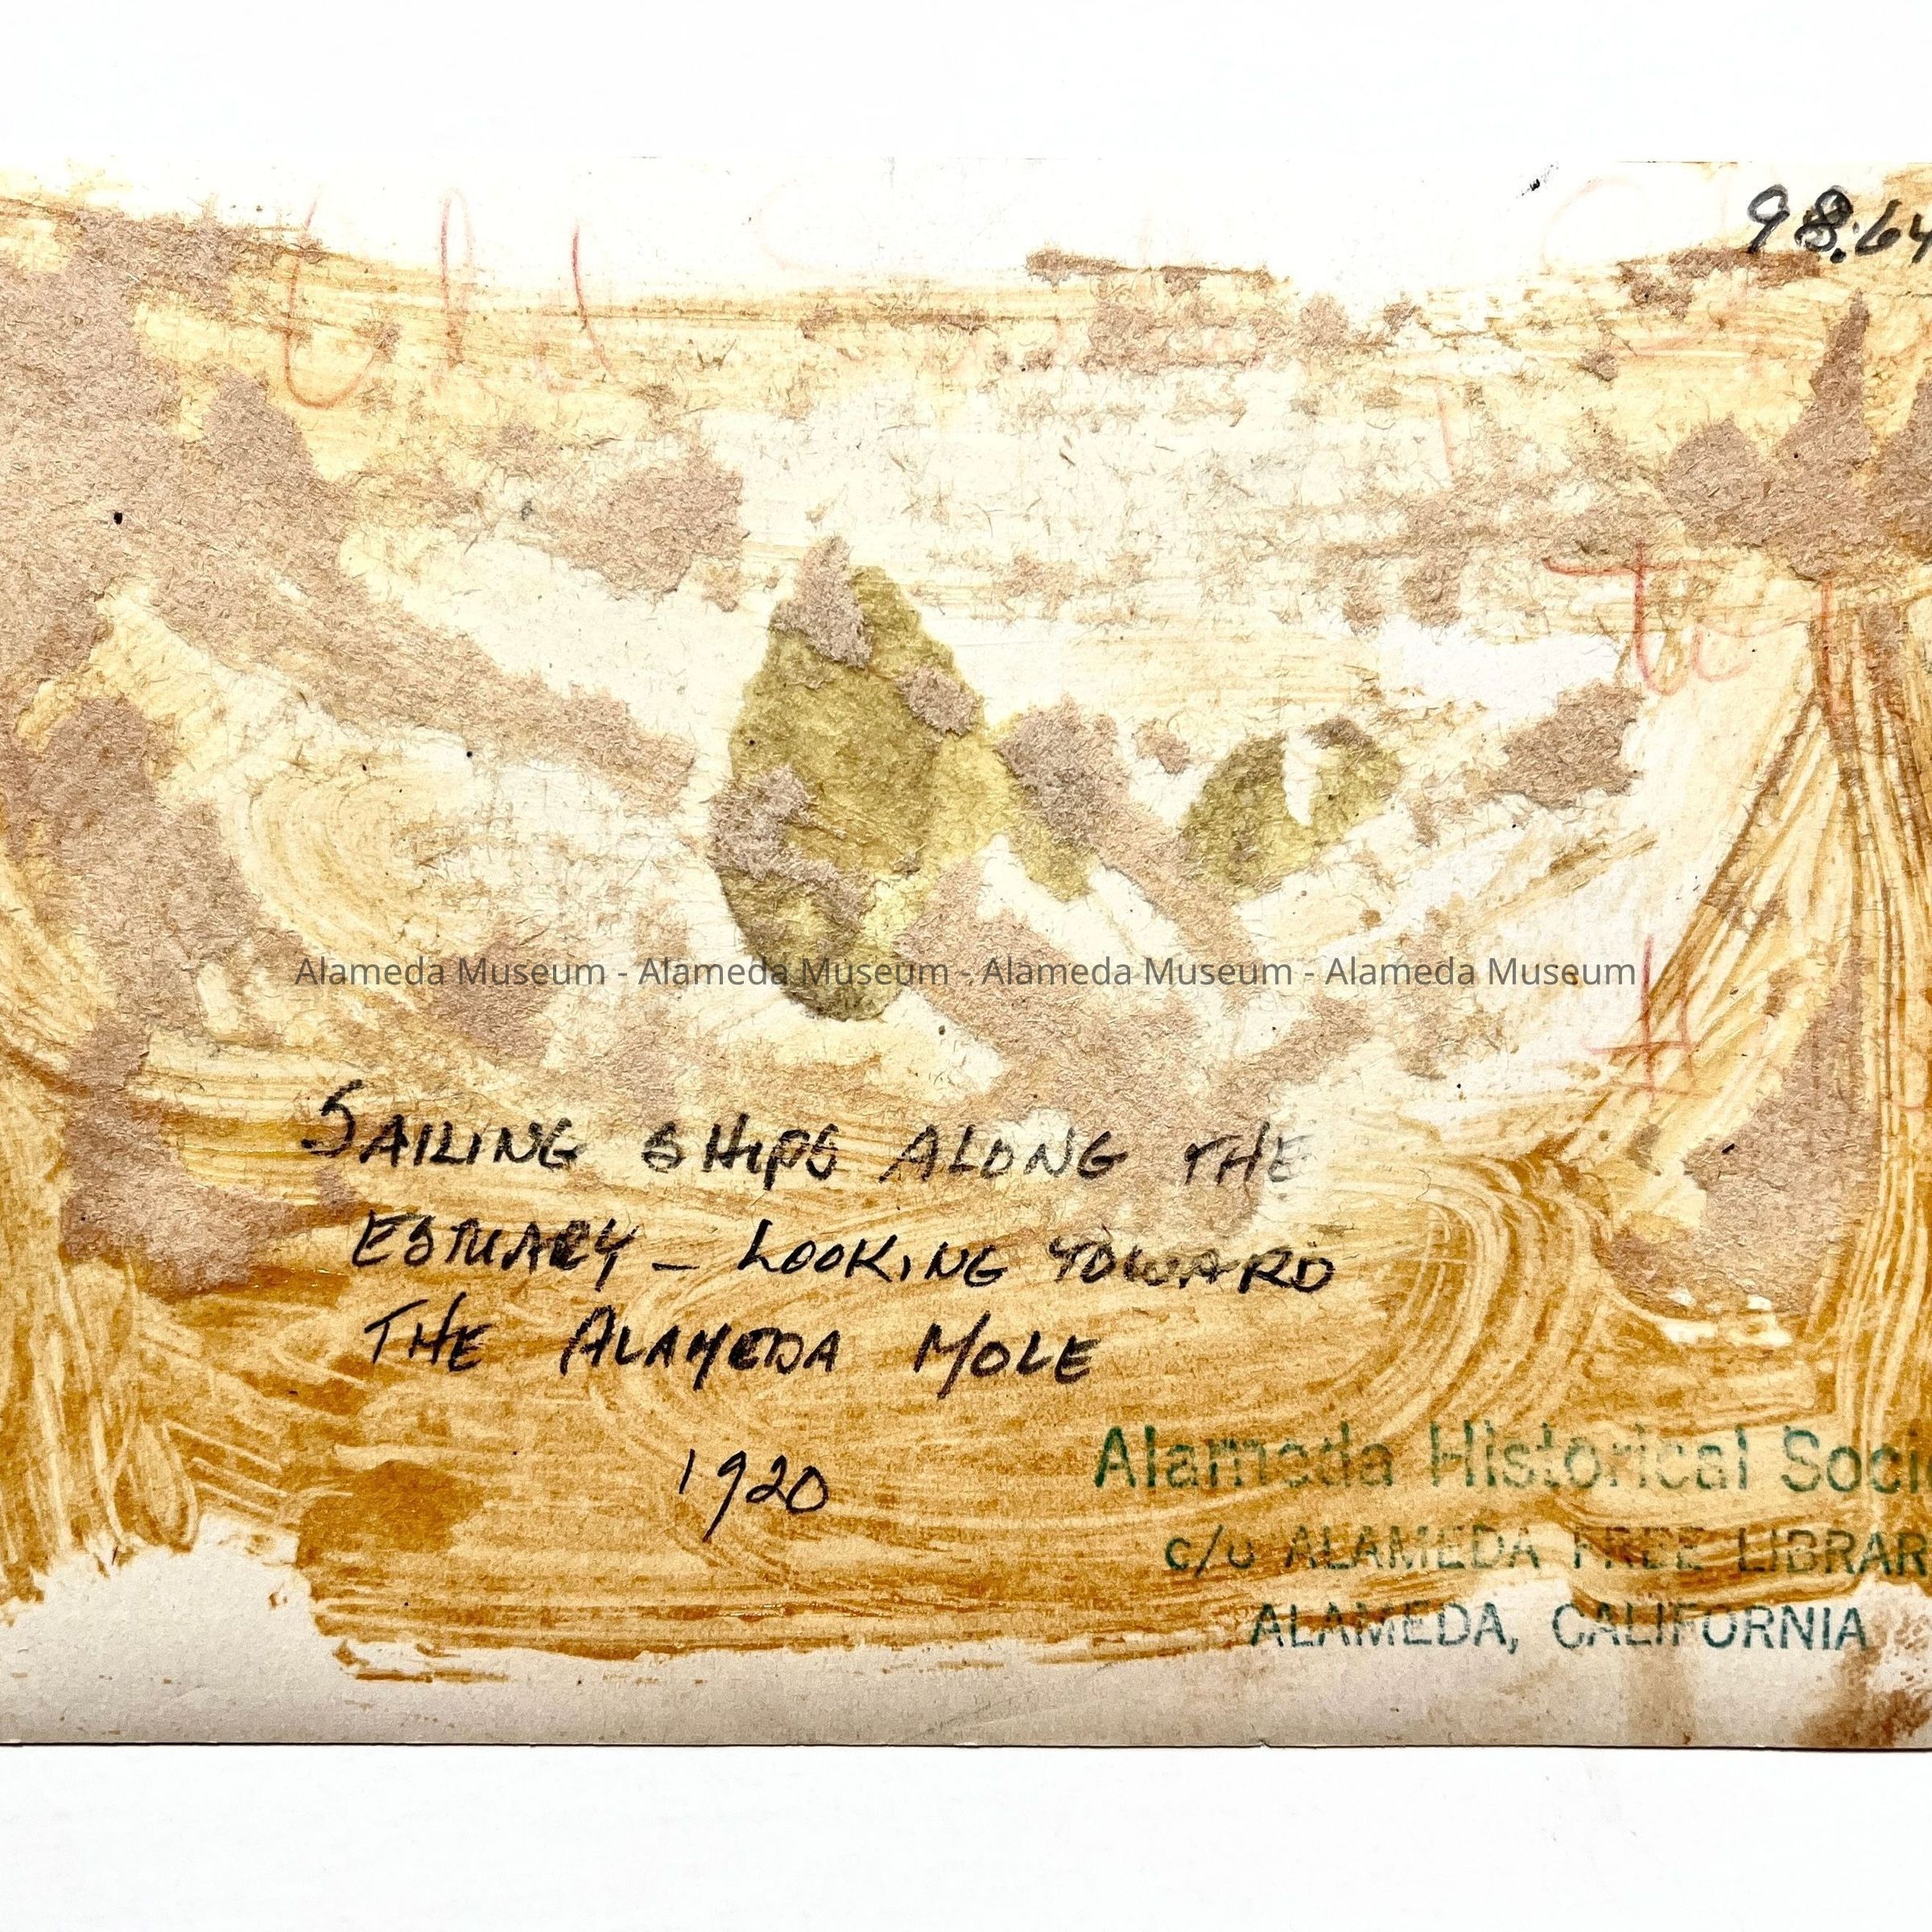 98.64
Alameda Museum - Alameda Museum - Alameda Museum - Alameda Museum
SAILING SHIPS ALONG THE
ESTUARY - LOOKING TOWARD
THE ALAMEDA MOLE
1920
Alameda Historical Soci
c/o ALAMEDA FREE LIBRAR
ALAMEDA, CALIFORNIA